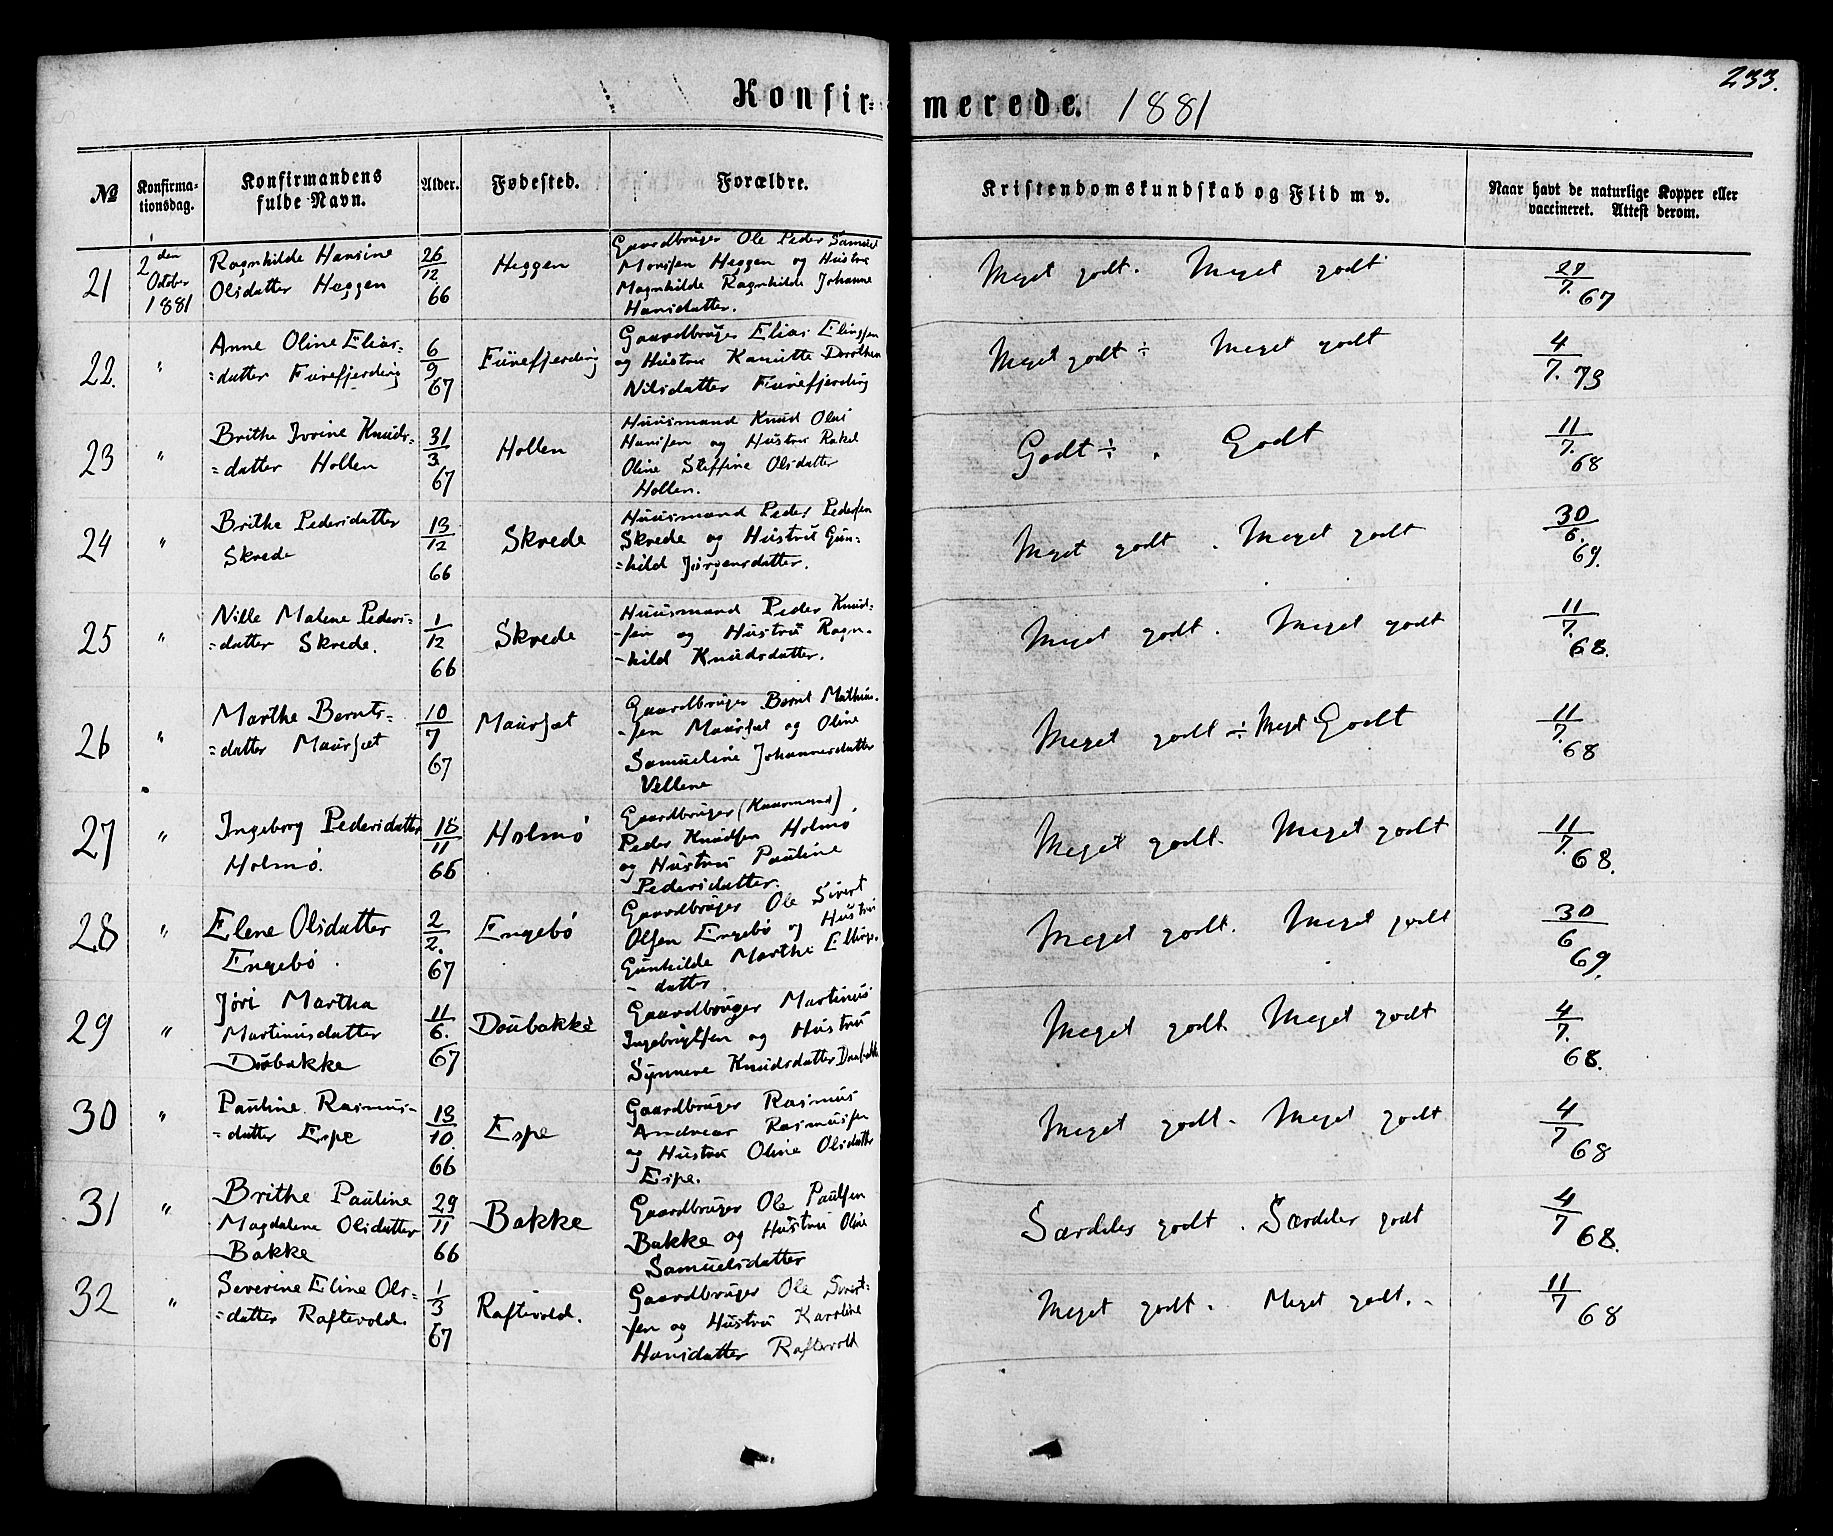 233.
Konfirmerede. 1881
№
Konfirmationsdag.
Konfirmandens fulde Navn.
Alder.
Fødested.
Forældre.
Kristendomskundskab og Flid m v.
Naar havt de naturlige Kopper eller vaccineret. Attest derom.
21
2den October 1881
Ragnhilde Hansine
Olsdatter Heggen
26/12 66
Heggen
Gaardbruger Ole Peder Samuel
Monsen Heggen og Hustru
Magnhilde Ragnhilde Johanne
Hansdatter.
Meget godt. Meget godt
28/7. 67
22.
"
Anne Oline Elias=
=datter Furefjerding
6/9 67
Furefjerding
Gaardbruger Elias Elingsen
og Hustru Kanutte Dorthea
Nilsdatter Furefjerding
Meget godt ÷ Meget godt
4/7. 73
23
"
Brithe Ivrine Knuds=
=datter Hollen
31/3 67
Hollen
Huusmand Knud Olai
Hansen og Hustru Rakel
Oline Steffine Olsdatter
Hollen.
Godt ÷ . Godt
11/7. 68
24
"
Brithe Pedersdatter
Skrede
13/12 66
Skrede
Huusmand Peder Pedersen
Skrede og Hustru Gun=
=hild Jørgensdatter.
Meget godt . Meget godt
30/6. 69.
25
"
Nille Malene Peders=
=datter Skrede.
1/12 66
Skrede
Huusmand Peder Knud=
-sen og Hustru Ragn-
-hild Knudsdatter.
Meget godt. Meget godt
11/7. 68.
26
"
Marthe Bernts=
=datter Maursæt
10/7 67
Maursæt
Gaardbruger Bernt Mathias-
-sen Maursæt og Oline
Samueline Johannesdatter
Vellene
Meget godt ÷ Meget Godt
11/7. 68
27
"
Ingeborg Pedersdatter
Holmø.
18/11 66
Holmø
Gaardbruger (Kaarmand).
Peder Knudsen Holmø
og Hustru Pauline
Pedersdatter.
Meget godt. Meget godt
11/7. 68.
28
"
Elene Olsdatter
Engebø.
2/2. 67
Engebø
Gaardbruger Ole Sivert
Olsen Engebø og Hustru
Gunhilde Marthe Ellings-
- datter.
Meget godt. Meget godt
30/6 69.
29
"
Jøri Martha
Martinusdatter
Daubakke
11/6. 67
Daubakke
Gaardbruger Martinus
Ingebrigtsen og Hustru
Synneve Knudsdatter Daubakke
Meget godt. Meget godt
4/7. 68.
30
"
Pauline Rasmus=
=datter Espe
13/10. 66
Espe
Gaardbruger Rasmus
Andreas Rasmussen
og Hustru Oline Olsdatter
Espe.
Meget godt. Meget godt
4/7 68
31
"
Brithe Pauline
Magdalene Olsdatter
Bakke
29/11 66
Bakke
Gaardbruger Ole Paulsen
Bakke og Hustru Oline
Samuelsdatter
Særdeles godt . Særdeles godt
4/7 68.
32
"
Severine Eline Ols=
=datter Raftevold.
1/3 67
Raftevold.
Gaardbruger Ole Sivert-
-sen og Hustru Karoline
Hansdatter Raftevold
Meget godt. Meget godt.
11/7 68